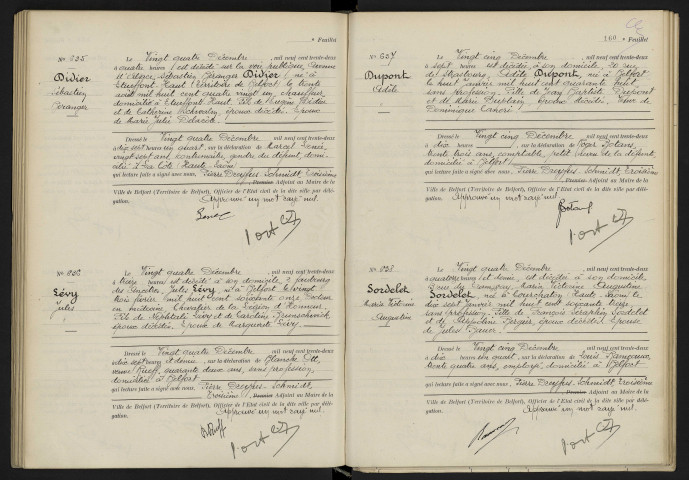 Feuillet
No 635
Didier
Sébastien
Géranger
Le Vingt quatre Décembre, mil neuf cent trente-deux
à quatre heures est décédé sur la voie publique, avenue
d'Alsace, Sébastien Géranger Didier, né à
Etueffont-Haut (Territoire de Belfort) le trente
août mil huit cent quatre vingt un, chauffeur
domicilié à Etueffont-Haut, Fils de Didier
et de Catherine, époux décédés. Époux
de Marie Julie
Dressé le Vingt quatre Décembre, mil neuf cent trente-deux
à dix sept heures un quart, sur la déclaration de Marcel
vingt sept ans, gendre du défunt, domi-
cilié à La Côte (Haute Saône)
qui lecture faite a signé avec nous, Pierre Dreyfus-Schmidt, troisième
Premier Adjoint au Maire de la
Ville de Belfort (Territoire de Belfort), Officier de l'Etat civil de la dite ville par délé-
gation. Approuvé un mot rayé nul.
No 636
Lévy
Jules
Le Vingt quatre Décembre, mil neuf cent trente-deux
à treize heures est décédé en son domicile, faubourg
des Ancêtres, Jules Lévy, né à Belfort le vingt
trois février mil huit cent soixante onze, Docteur
en médecine, Chevalier de la Légion d'Honneur
Fils de Nephtali Lévy et de Caroline Brunschwick
époux décédés. Époux de Marguerite Lévy.
Dressé le Vingt quatre Décembre, mil neuf cent trente-deux
à dix sept heures et demie, sur la déclaration de Blanche
veuve Rueff, quarante deux ans, sans profession,
domiciliée à Belfort
qui lecture faite a signé avec nous, Pierre Dreyfus-Schmidt,
troisième Premier Adjoint au Maire de la
Ville de Belfort (Territoire de Belfort), Officier de l'Etat civil de la dite ville par délé-
gation. Approuvé un mot rayé nul.
160 Feuillet
No 637
Dupont
Cédile
Le Vingt cinq Décembre, mil neuf cent trente-deux
à sept heures est décédée à son domicile, rue
de Strasbourg, Cédile Dupont, née à Belfort
le huit Janvier mil huit cent quarante huit
sans profession. Fille de Jean Baptiste Dupont
et de Marie, époux décédés. Veuve de
Dominique
Dressé le Vingt cinq Décembre, mil neuf cent trente-deux
à dix heures, sur la déclaration de Roger
trente trois ans, comptable, petit neveu de la défunte,
domicilié à Belfort
qui lecture faite a signé avec nous, Pierre Dreyfus-Schmidt, troisième
Premier Adjoint au Maire de la
Ville de Belfort (Territoire de Belfort), Officier de l'Etat civil de la dite ville par délé-
gation. Approuvé un mot rayé nul.
No 638
Sordelet
Maria Victorine
Augustine
Le Vingt quatre Décembre, mil neuf cent trente-deux
à quatorze heures et demie, est décédée en son domicile
Maria Victorine Augustine
Sordelet, née à Courchaton, Haute-Saône le
dix sept janvier mil huit cent soixante treize
sans profession. Fille de François Séraphin Sordelet
et de, époux décédés. Épouse
de Jules
Dressé le Vingt cinq Décembre, mil neuf cent trente-deux
à dix heures un quart, sur la déclaration de Louis
trente quatre ans, employé, domicilié à Belfort
qui lecture faite a signé avec nous, Pierre Dreyfus-Schmidt, troisième
Premier Adjoint au Maire de la
Ville de Belfort (Territoire de Belfort), Officier de l'Etat civil de la dite ville par délé-
gation. Approuvé un mot rayé nul.